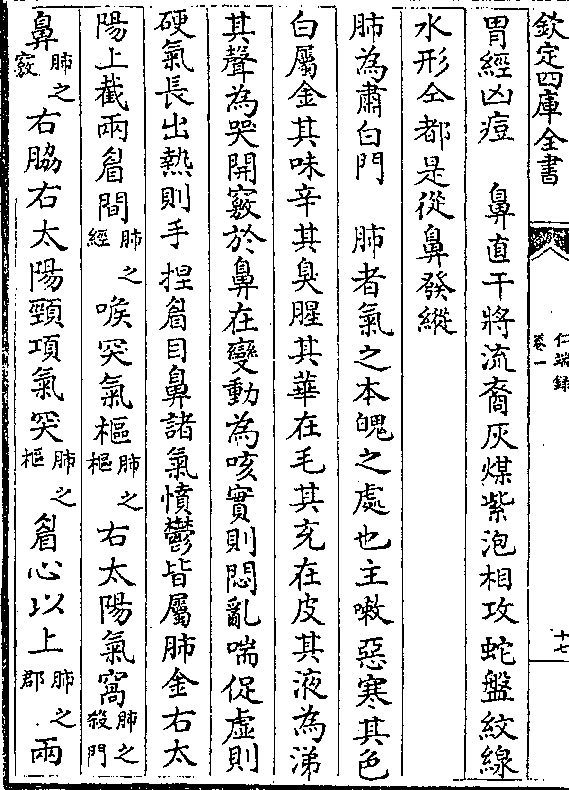 欽定四庫全書
仁端錄
卷一
十七
胃經凶痘　鼻直干將流裔灰煤紫泡相攻蛇盤紋線
水形仝都是從鼻發縱
肺為肅白門　肺者氣之本魄之處也主嗽惡寒其色
白屬金其味辛其臭腥其華在毛其充在皮其液為涕
其聲為哭開竅於鼻在變動為咳實則悶亂喘促虛則
硬氣長出熱則手捏眉目鼻諸氣憤鬱皆屬肺金右太
陽上截兩眉間肺之經喉突氣樞肺之樞右太陽氣窩肺之殺門
鼻肺之竅右脇右太陽頸項氣突肺之樞眉心以上肺之郡兩